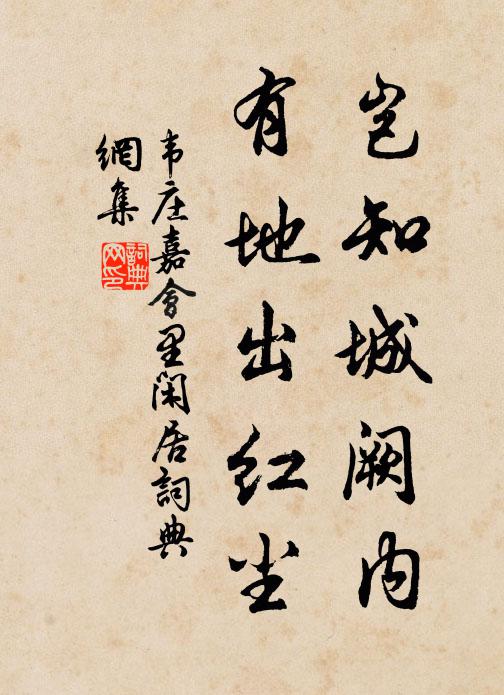 岂知城阙内
有地出红尘
韦庄嘉会里闲居词典
網集
詞典网印